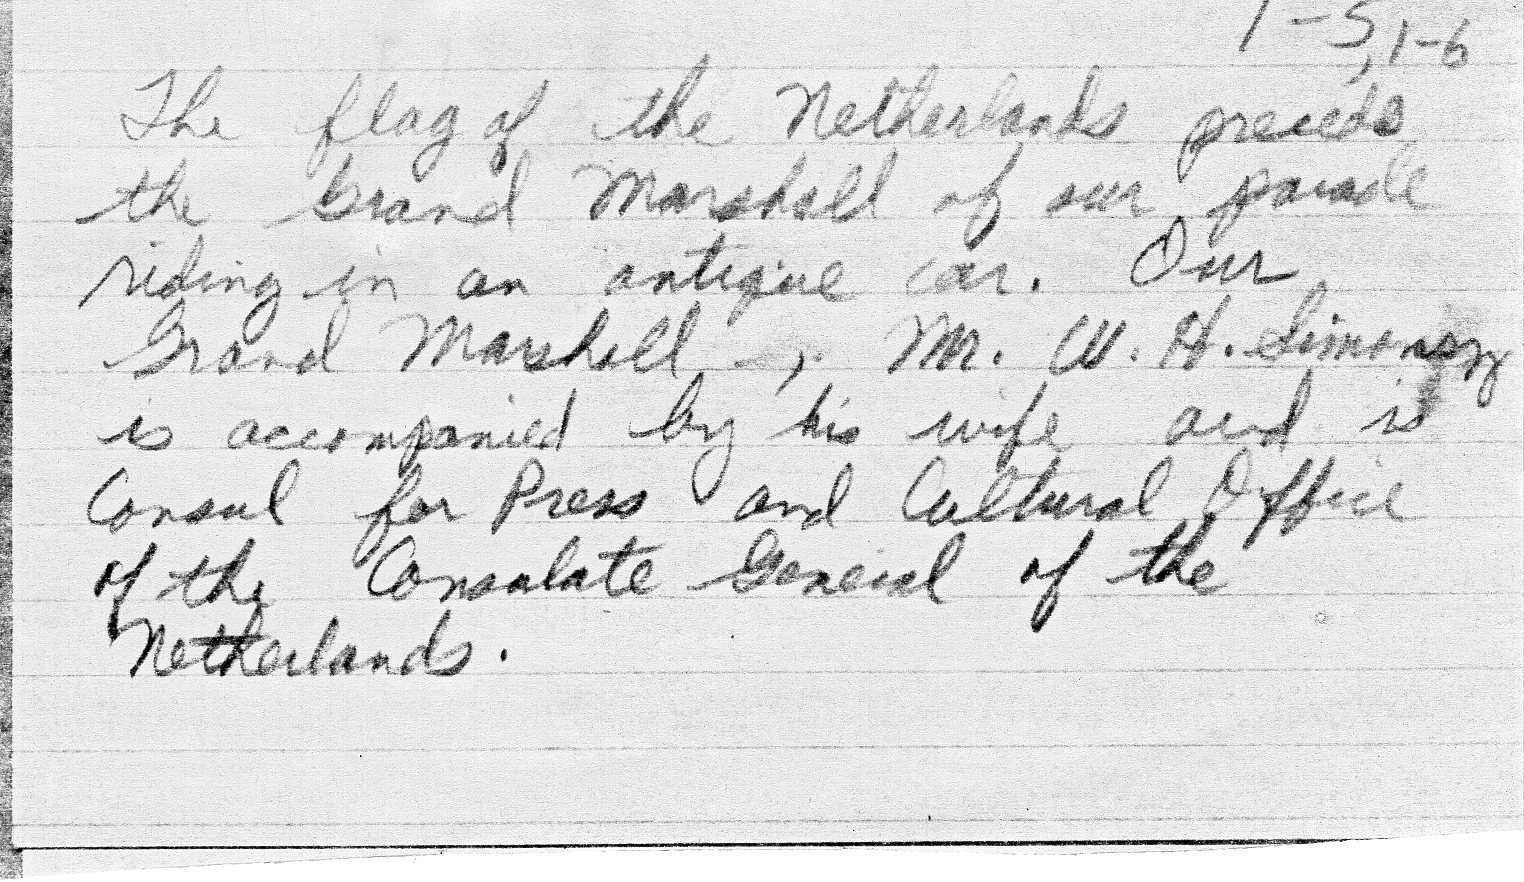 1-5, 1-6
The flag of the Netherlands precedes
the Grand Marshall of our parade
riding in an antique car. Our
Grand Marshall, Mr. W. H. Simonsz
is accompanied by his wife and is
Consul for Press and Cultural Office
of the Consulate General of the
Netherlands.